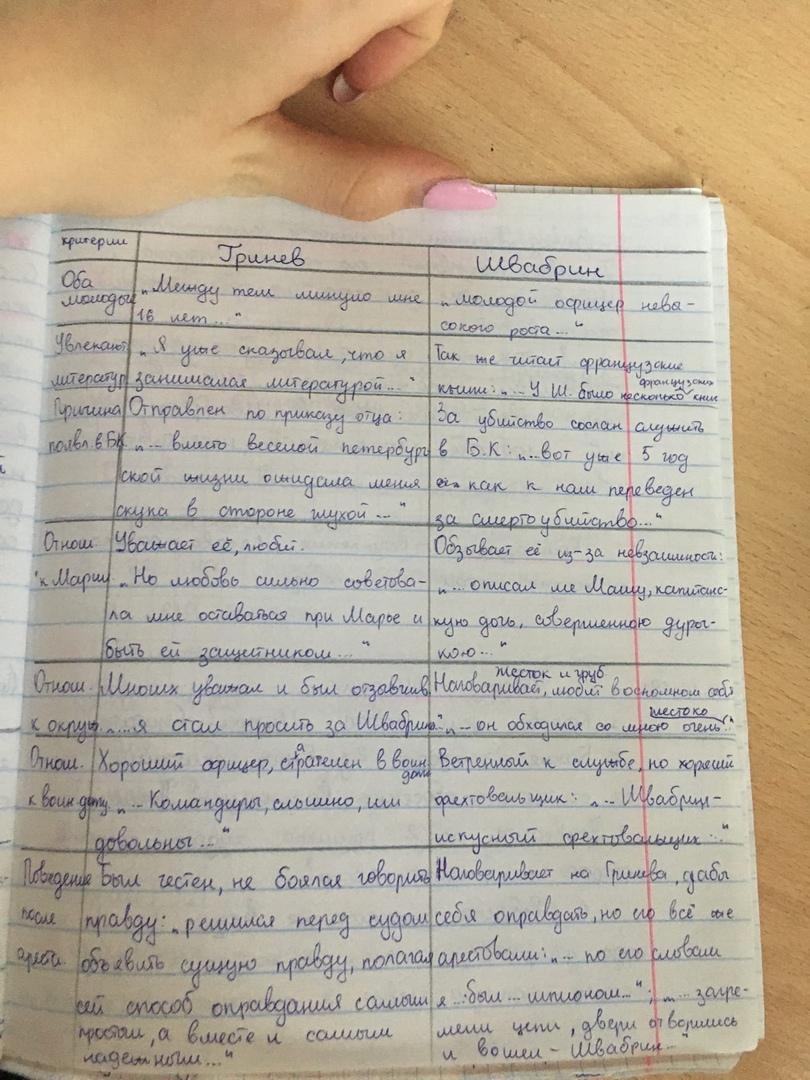 критерии Гринев Швабрин
Оба
молодые
„Между тем минуло мне
16 лет..."
„молодой офицер невы-
сокого роста..."
Увлекают.
литератур.
„Я уже сказывал, что я
занимался литературой..."
Так же читает французские
книги: „... У Ш. было несколько французских книг
Причина
появл. в БК
Отправлен по приказу отца:
„... вместо веселой петербург
ской жизни ожидала меня
скука в стороне глухой..."
За убийство сослан служить
в Б.К: „...вот уже 5 год
как к нам переведен
за смертоубийство..."
Отнош.
к Марии
Уважает её, любит.
„Но любовь сильно советова-
ла мне оставаться при Марье и
быть ей защитником..."
Обзывает её из-за невзаимности:
„... описал мне Машу, капитанс-
кую дочь, совершенною дуроч-
кою..."
Отнош.
к окруж.
Многих уважал и был отзывчив
„...я стал просить за Швабрина"
жесток и груб
Наговаривает, любит в основном себя
„... он обходился со мною очень жестоко..."
Отнош.
к воин. делу
Хороший офицер, старателен в воин. деле
„... Командиры, слышно, им
довольны..."
Ветренный к службе, но хороший
фехтовальщик: „... Швабрин-
искусный фехтовальщик..."
Поведение
после
ареста
Был честен, не боялся говорить
правду: „решился перед судом
объявить сущую правду, полагая
сей способ оправдания самым
простым, а вместе и самым
надежным..."
Наговаривает на Гринева, дабы
себя оправдать, но его всё же
арестовали: „... по его словам
я ... был ... шпионом..."; „... загре-
мели цепи, двери отворились
и вошел - Швабрин..."